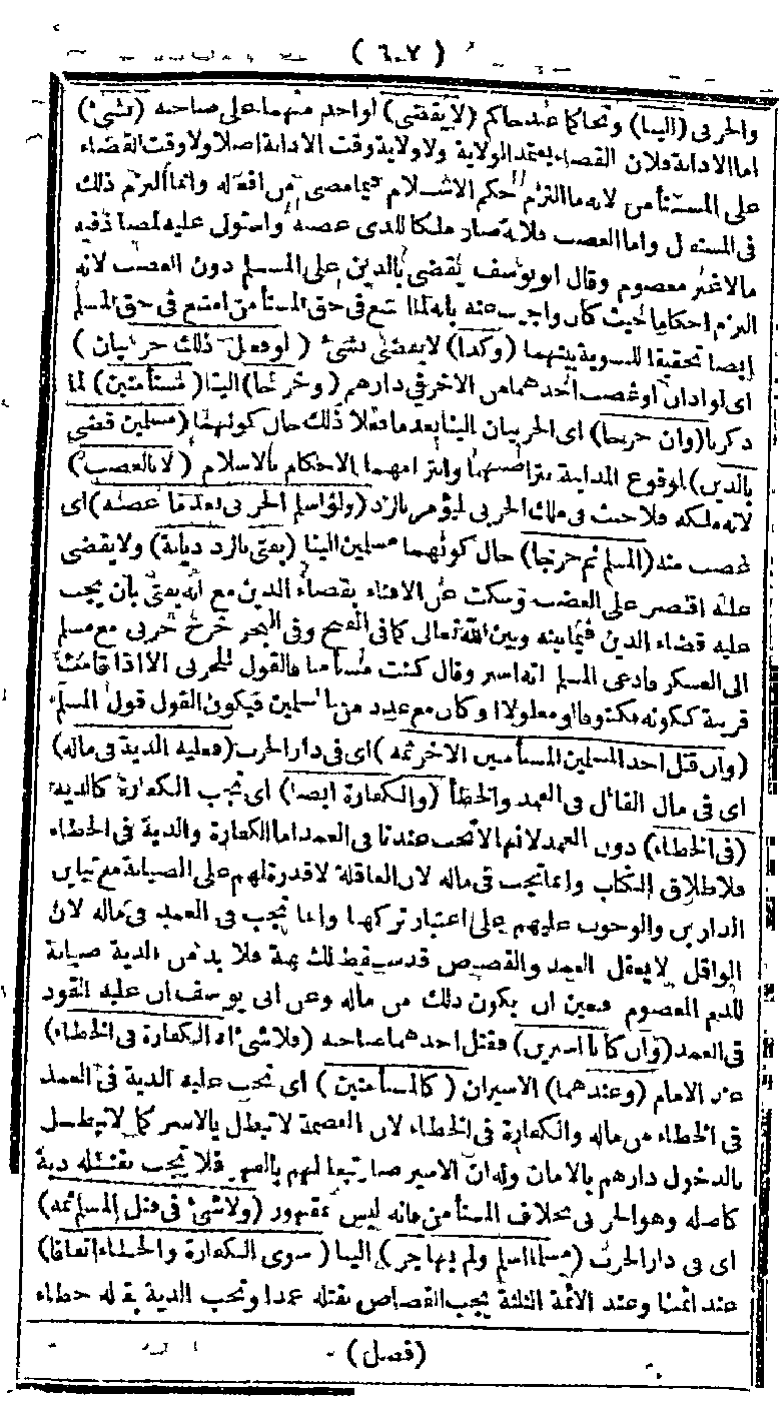 (٦٠٧)
والحربى (الينا) وتحاكما عند حاكم (لا يقضى) لواحد منهما على صاحبه (بشئ)
اما الادانة فلان القضاء يعتمد الولاية ولا ولاية وقت الادانة اصلا ولا وقت القضاء
على المستأمن لانه ما التزم حكم الاسلام فيما مضى من افعاله وانما التزم ذلك
فى المستقبل واما الغصب فلانه صار ملكا للذى غصبه واستولى عليه لمصادفته
مالا غير معصوم وقال ابو يوسف يقضى بالدين على المسلم دون الغصب لانه
التزم احكامنا حيث كان واجيب عنه بانه لما امتنع فى حق المستأمن امتنع فى حق المسلم
ايضا تحقيقا للتسوية بينهما (وكذا) لا يقضى بشئ (لو فعل ذلك حربيان)
اى لو ادان او غصب احدهما من الاخر فى دارهم (وخرجا) الينا (مستأمنين) لما
ذكرنا (وان خرجا) اى الحربيان الينا بعد ما فعلا ذلك حال كونهما (مسلمين قضى
بالدين) لوقوع المداينة بتراضيهما والتزامهما الاحكام بالاسلام (لا بالغصب)
لانه ملكه فلا خبث فى ملك الحربى ليؤمر بالرد (ولو اسلم الحربى بعد ما غصبه) اى
غصب منه (المسلم ثم خرجا) حال كونهما مسلمين الينا (يفتى بالرد ديانة) ولا يقضى
عليه اقتصر على الغصب وسكت عن الافتاء بقضاء الدين مع انه يفتى بان يجب
عليه قضاء الدين فيما بينه وبين الله تعالى كما فى الفتح وفى البحر خرج حربى مع مسلم
الى العسكر فادعى المسلم انه اسير وقال كنت مستأمنا فالقول للحربى الا اذا قامت
قرينة ككونه مكتوفا او مغلولا او كان مع عدد من المسلمين فيكون القول قول المسلم
(وان قتل احد المسلمين المستأمنين الاخر ثمه) اى فى دار الحرب (فعليه الدية فى ماله)
اى فى مال القاتل فى العمد والخطأ (والكفارة ايضا) اى تجب الكفارة كالدية
(فى الخطاء) دون العمد لانها لا تجب عندنا فى العمد اما الكفارة والدية فى الخطاء
فلاطلاق الكتاب وانما تجب فى ماله لان العاقلة لا قدرة لهم على الصيانة مع تباين
الدارين والوجوب عليهم على اعتبار تركها وانما تجب فى العمد فى ماله لان
العواقل لا يعقل العمد والقصاص قد سقط للشبهة فلا بد من الدية صيانة
للدم المعصوم فتعين ان يكون ذلك من ماله وعن ابى يوسف ان عليه القود
فى العمد (وان كانا اسيرين) فقتل احدهما صاحبه (فلا شئ الا الكفارة فى الخطاء)
عند الامام (وعندهما) الاسيران (كالمستأمنين) اى تجب عليه الدية فى العمد
فى الخطاء من ماله والكفارة فى الخطاء لان العصمة لا تبطل بالاسر كما لا تبطل
بالدخول دارهم بالامان وله ان الاسير صار تبعا لهم بالقهر فلا تجب بقتله دية
كاصله وهو الحربى بخلاف المستأمن فانه ليس بمقهور (ولا شئ فى قتل المسلم ثمه)
اى فى دار الحرب (مسلما اسلم ولم يهاجر) الينا (سوى الكفارة والخطاء اتفاقا)
عند ائمتنا وعند الائمة الثلثة يجب القصاص بقتله عمدا وتجب الدية بقتله خطاء
(فصل)